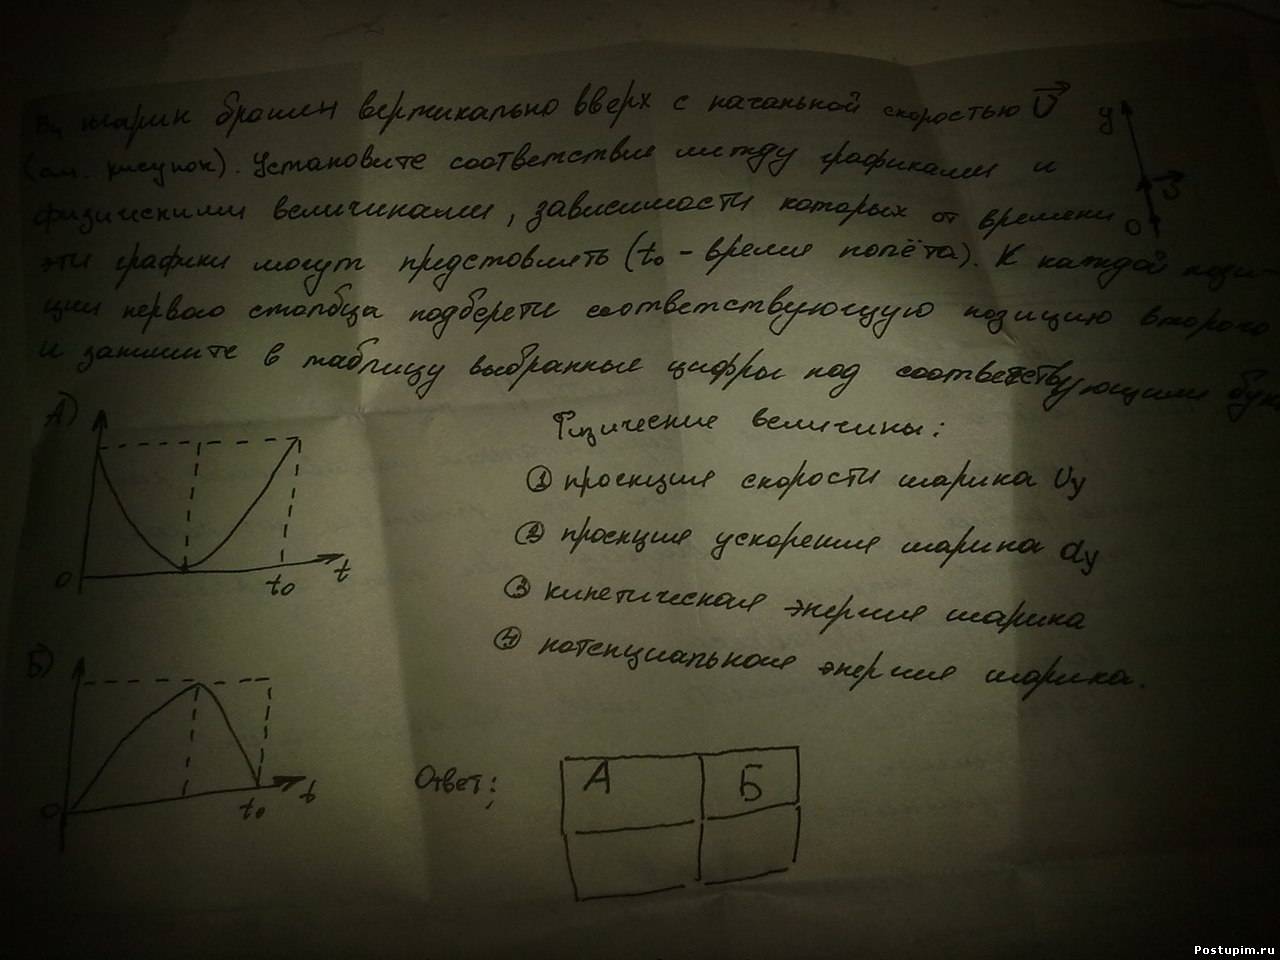 В₁ шарик брошен вертикально вверх с начальной скоростью V
(см. рисунок). Установите соответствие между графиками и
физическими величинами, зависимости которых от времени
эти графики могут представлять (t₀ - время полёта). К каждой пози-
ции первого столбца подберети соответствующую позицию второго
и запишите в таблицу выбранные цифры под соответствующими бук
y
V
0
А)
0
t₀
t
Физические величины:
① проекция скорости шарика Vy
② проекция ускорения шарика ay
③ кинетическая энергия шарика
④ потенциальная энергия шарика.
Б)
0
t₀
t
Ответ:
А Б
Postupim.ru